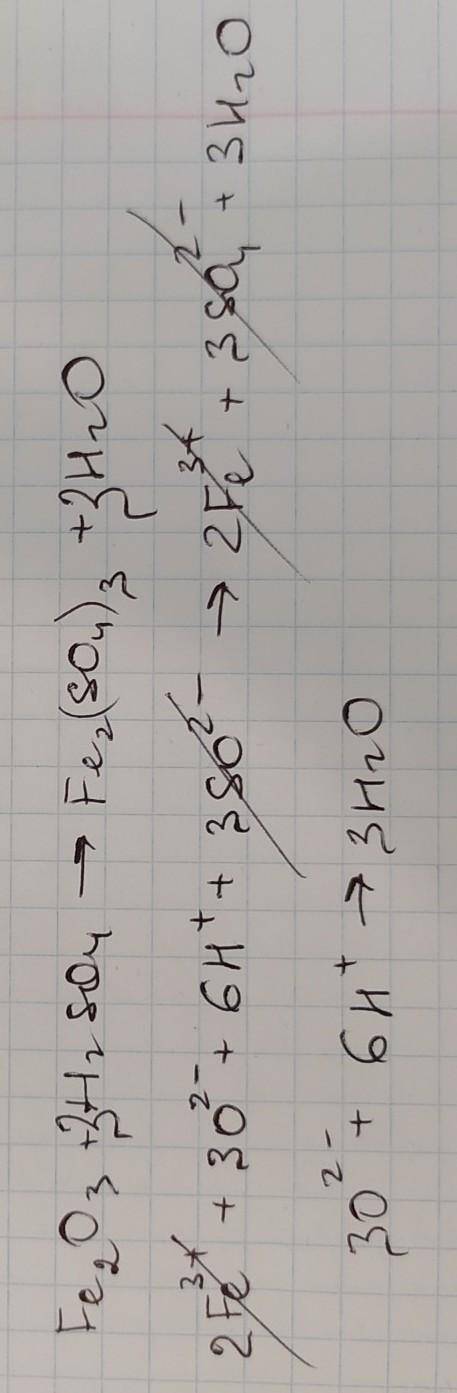 Fe₂O₃ + 3H₂SO₄ → Fe₂(SO₄)₃ + 3H₂O
2Fe³⁺ + 3O²⁻ + 6H⁺ + 3SO²⁻ → 2Fe³⁺ + 3SO₄²⁻ + 3H₂O
3O²⁻ + 6H⁺ → 3H₂O